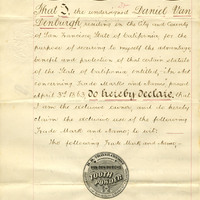 That I, the undersigned Daniel Van
Denburgh residing in the City and County
of San Francisco, State of California for the
purpose of securing to myself the advantage
benefit and protection of that certain statute
of the State of California entitled "An Act
concerning Trade Marks and Names" passed
April 3rd 1863, do hereby declare, that
I am the exclusive owner, and do hereby
claim the exclusive use of the following
Trade Mark and Name, to wit:
The following Trade Mark and Name:
TOOTH
POWDER